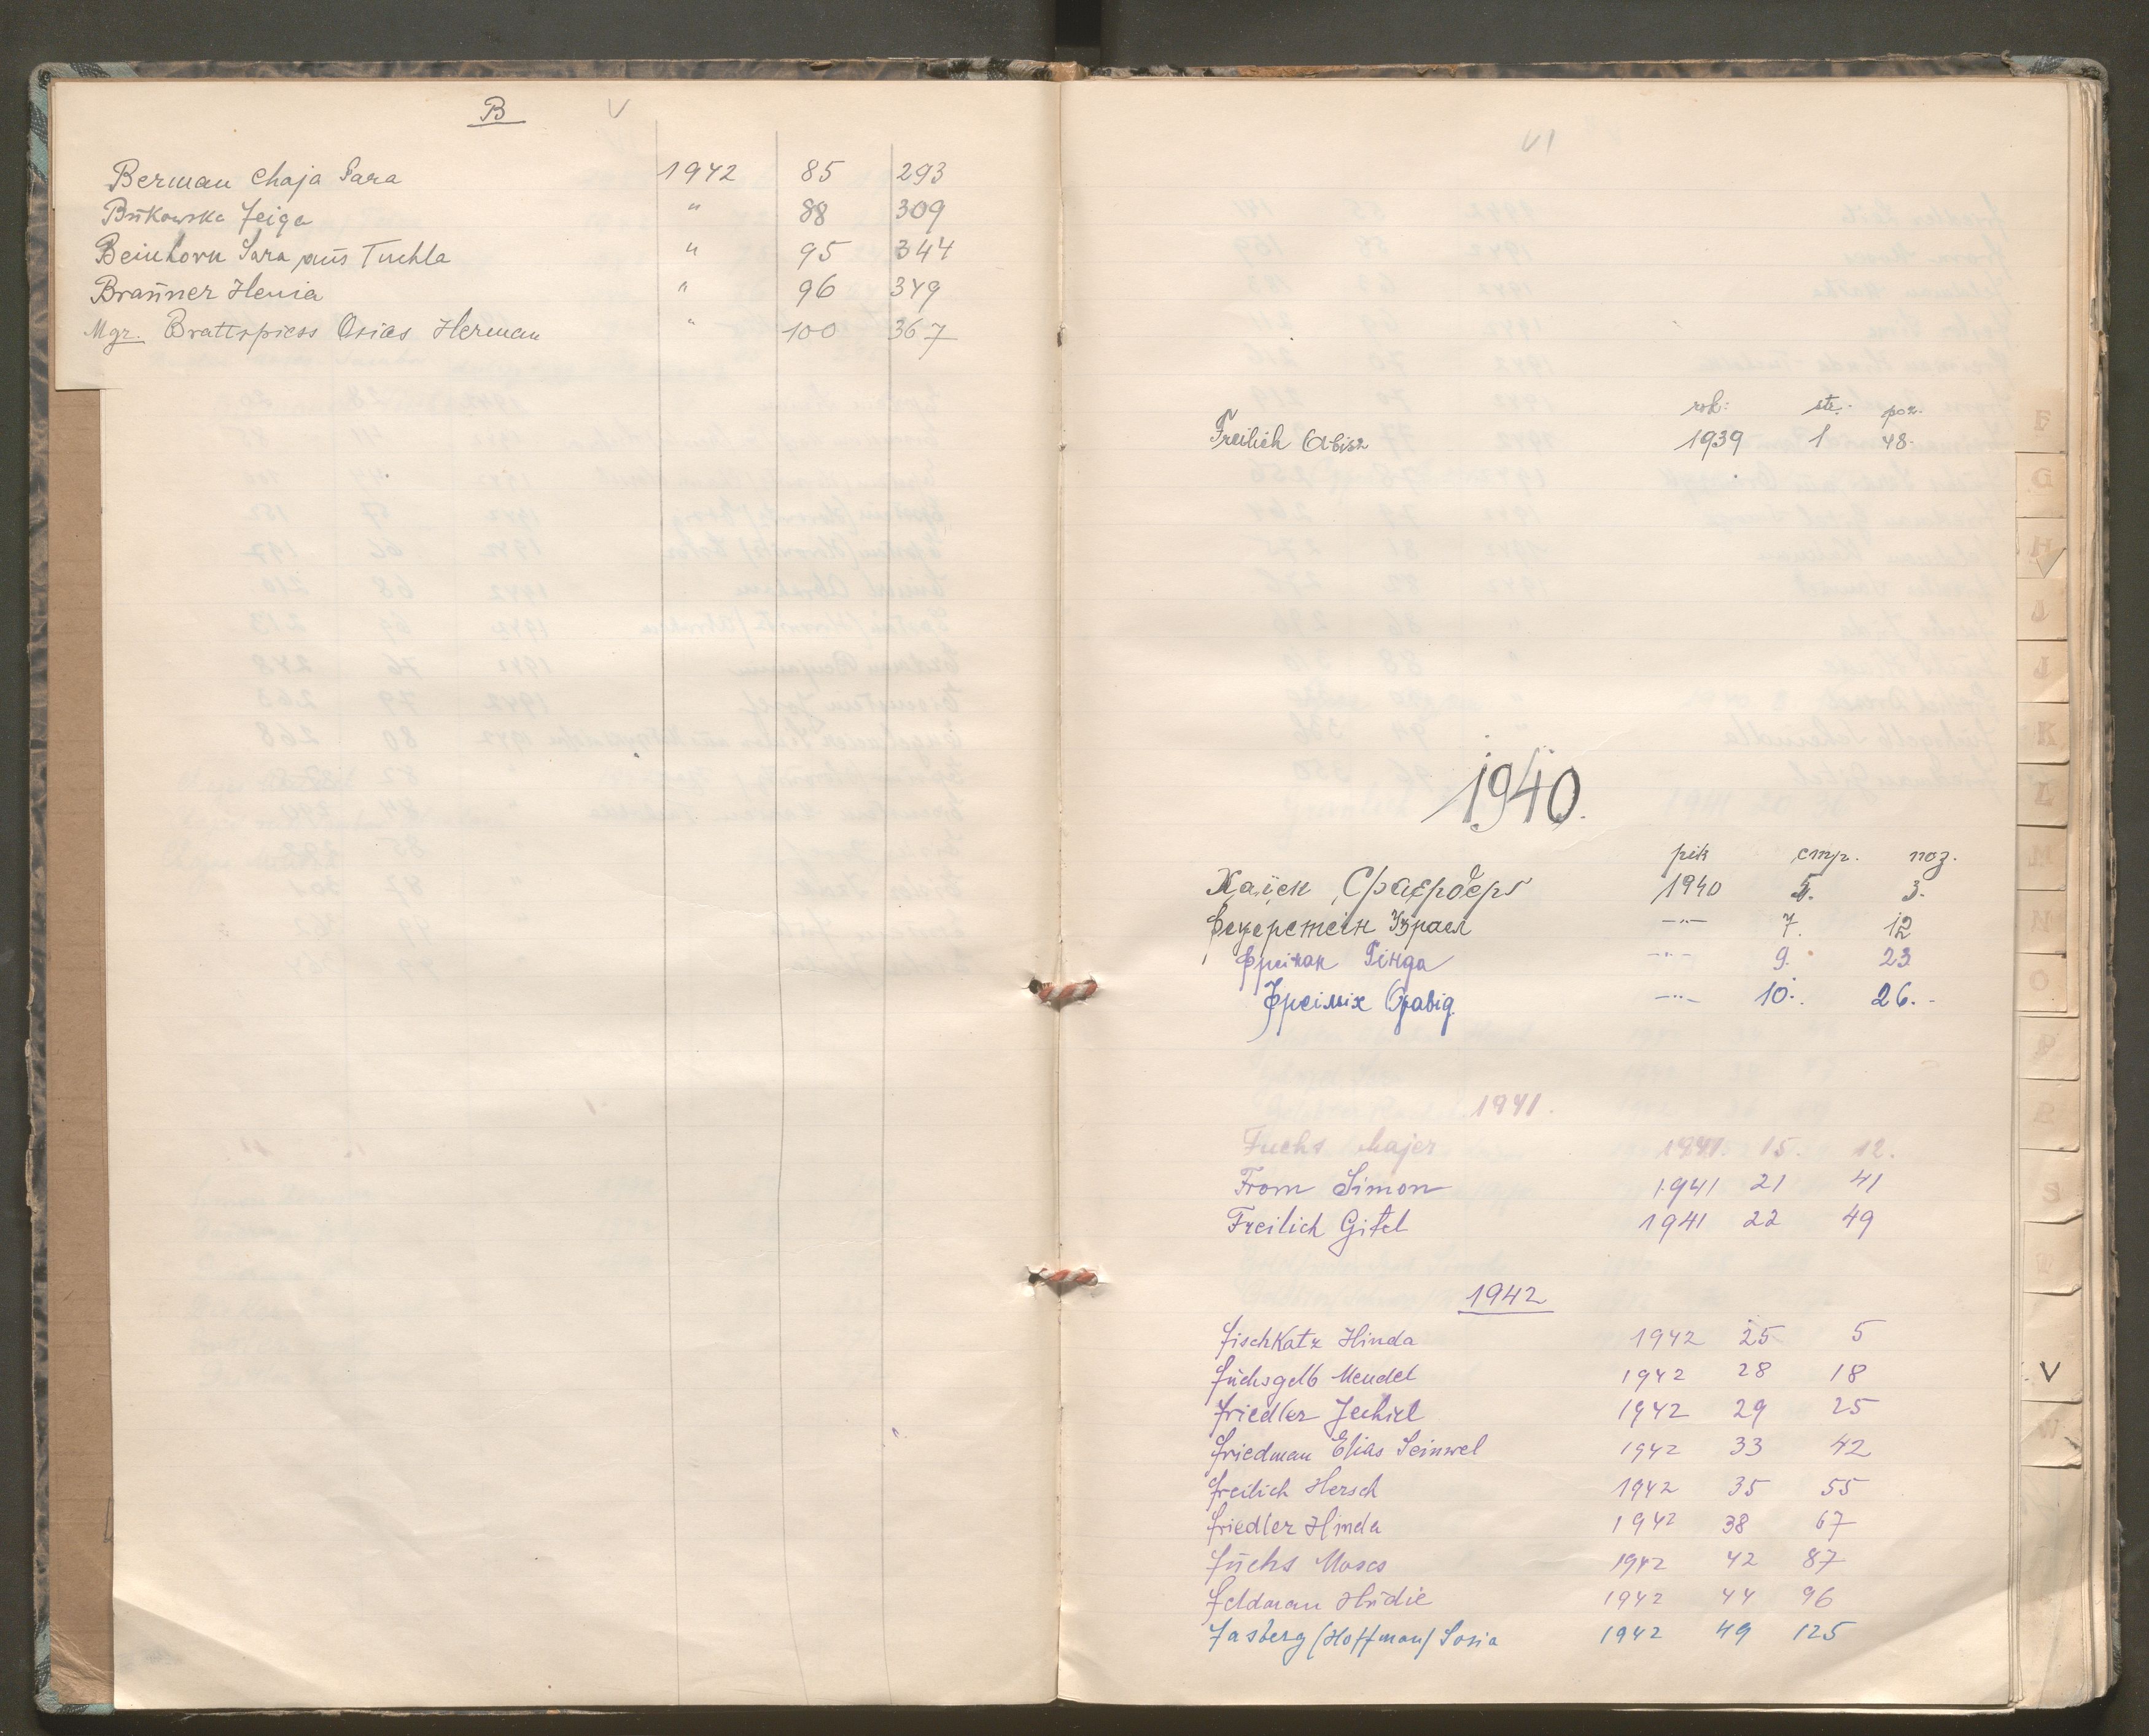 B V
Berman Chaja Sara 1942 85 293
Bŭkowska Feiga " 88 309
Beinhorn Sara aŭs Tuchla " 95 344
Braŭner Henia " 96 349
Mgr. Brattspiess Osias Herman " 100 367
VI
rok: str. poz.
Freilich Abisz 1939 1 48.
1940.
рік стр. поз.
Хаїєн 1940 5. 3.
Ізраел —"— 7. 12
Гінда —"— 9. 23
Фреіліх —"— 10. 26.
1941.
Fuchs Majer 1941. 15. 12.
From Simon 1941 21 41
Freilich Gitel 1941 22 49
1942
FischKatz Hinda 1942 25 5
Fŭchsgelb Mendel 1942 28 18
Friedler Jechiel 1942 29 25
Friedman Elias Seinwel 1942 33 42
Freilich Hersch 1942 35 55
Friedler Hinda 1942 38 67
Fŭchs Moses 1942 42 87
Feldman Hŭdie 1942 44 96
Fasberg /Hoffman/ Sosia 1942 49 125
F
G
H
J
J
K
L
M
N
O
P
S
V
W